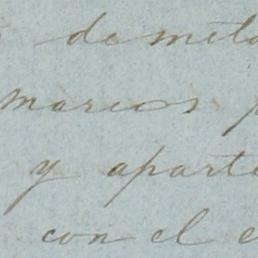 de meta
marcos p
y aparte
con el e